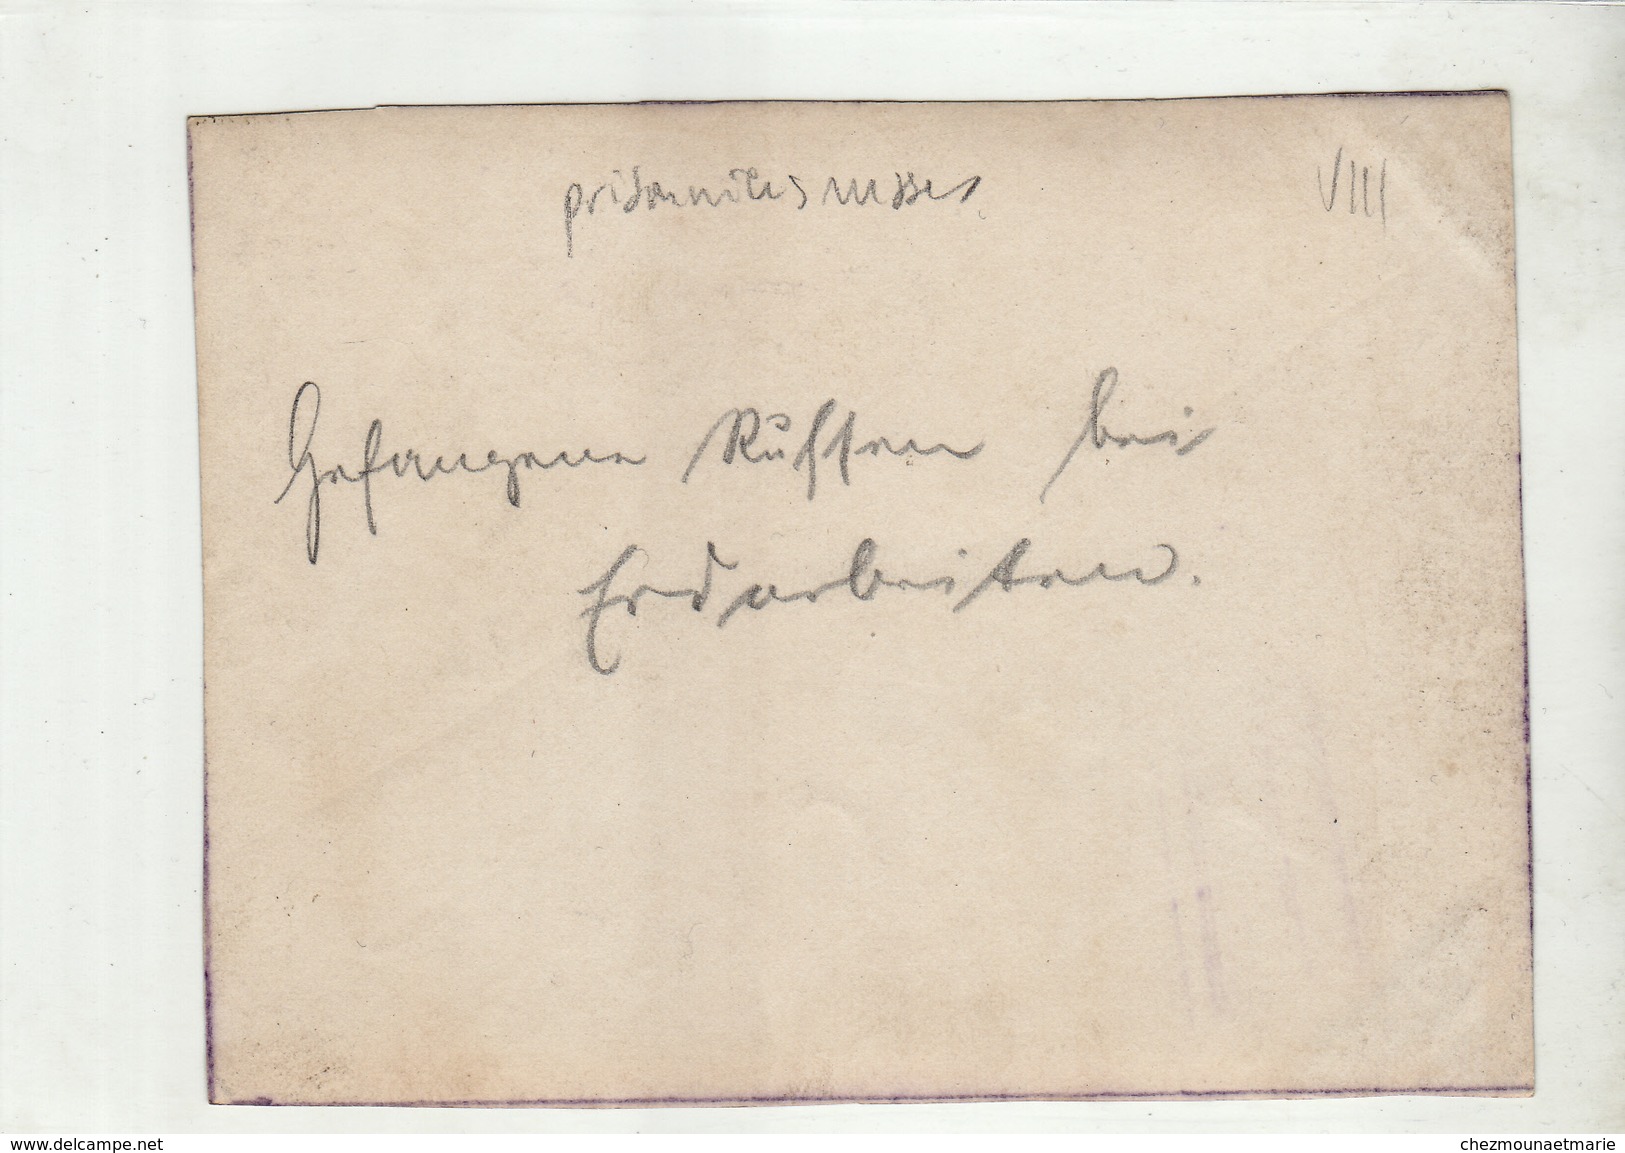 prisonniers russes
VIII
Gefangene Russen bei
Erdarbeiten.
www.delcampe.net
chezmounaetmarie